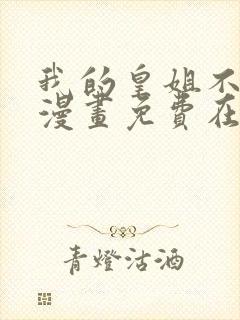 我的皇姐不
漫畫免費在
青燈沽酒